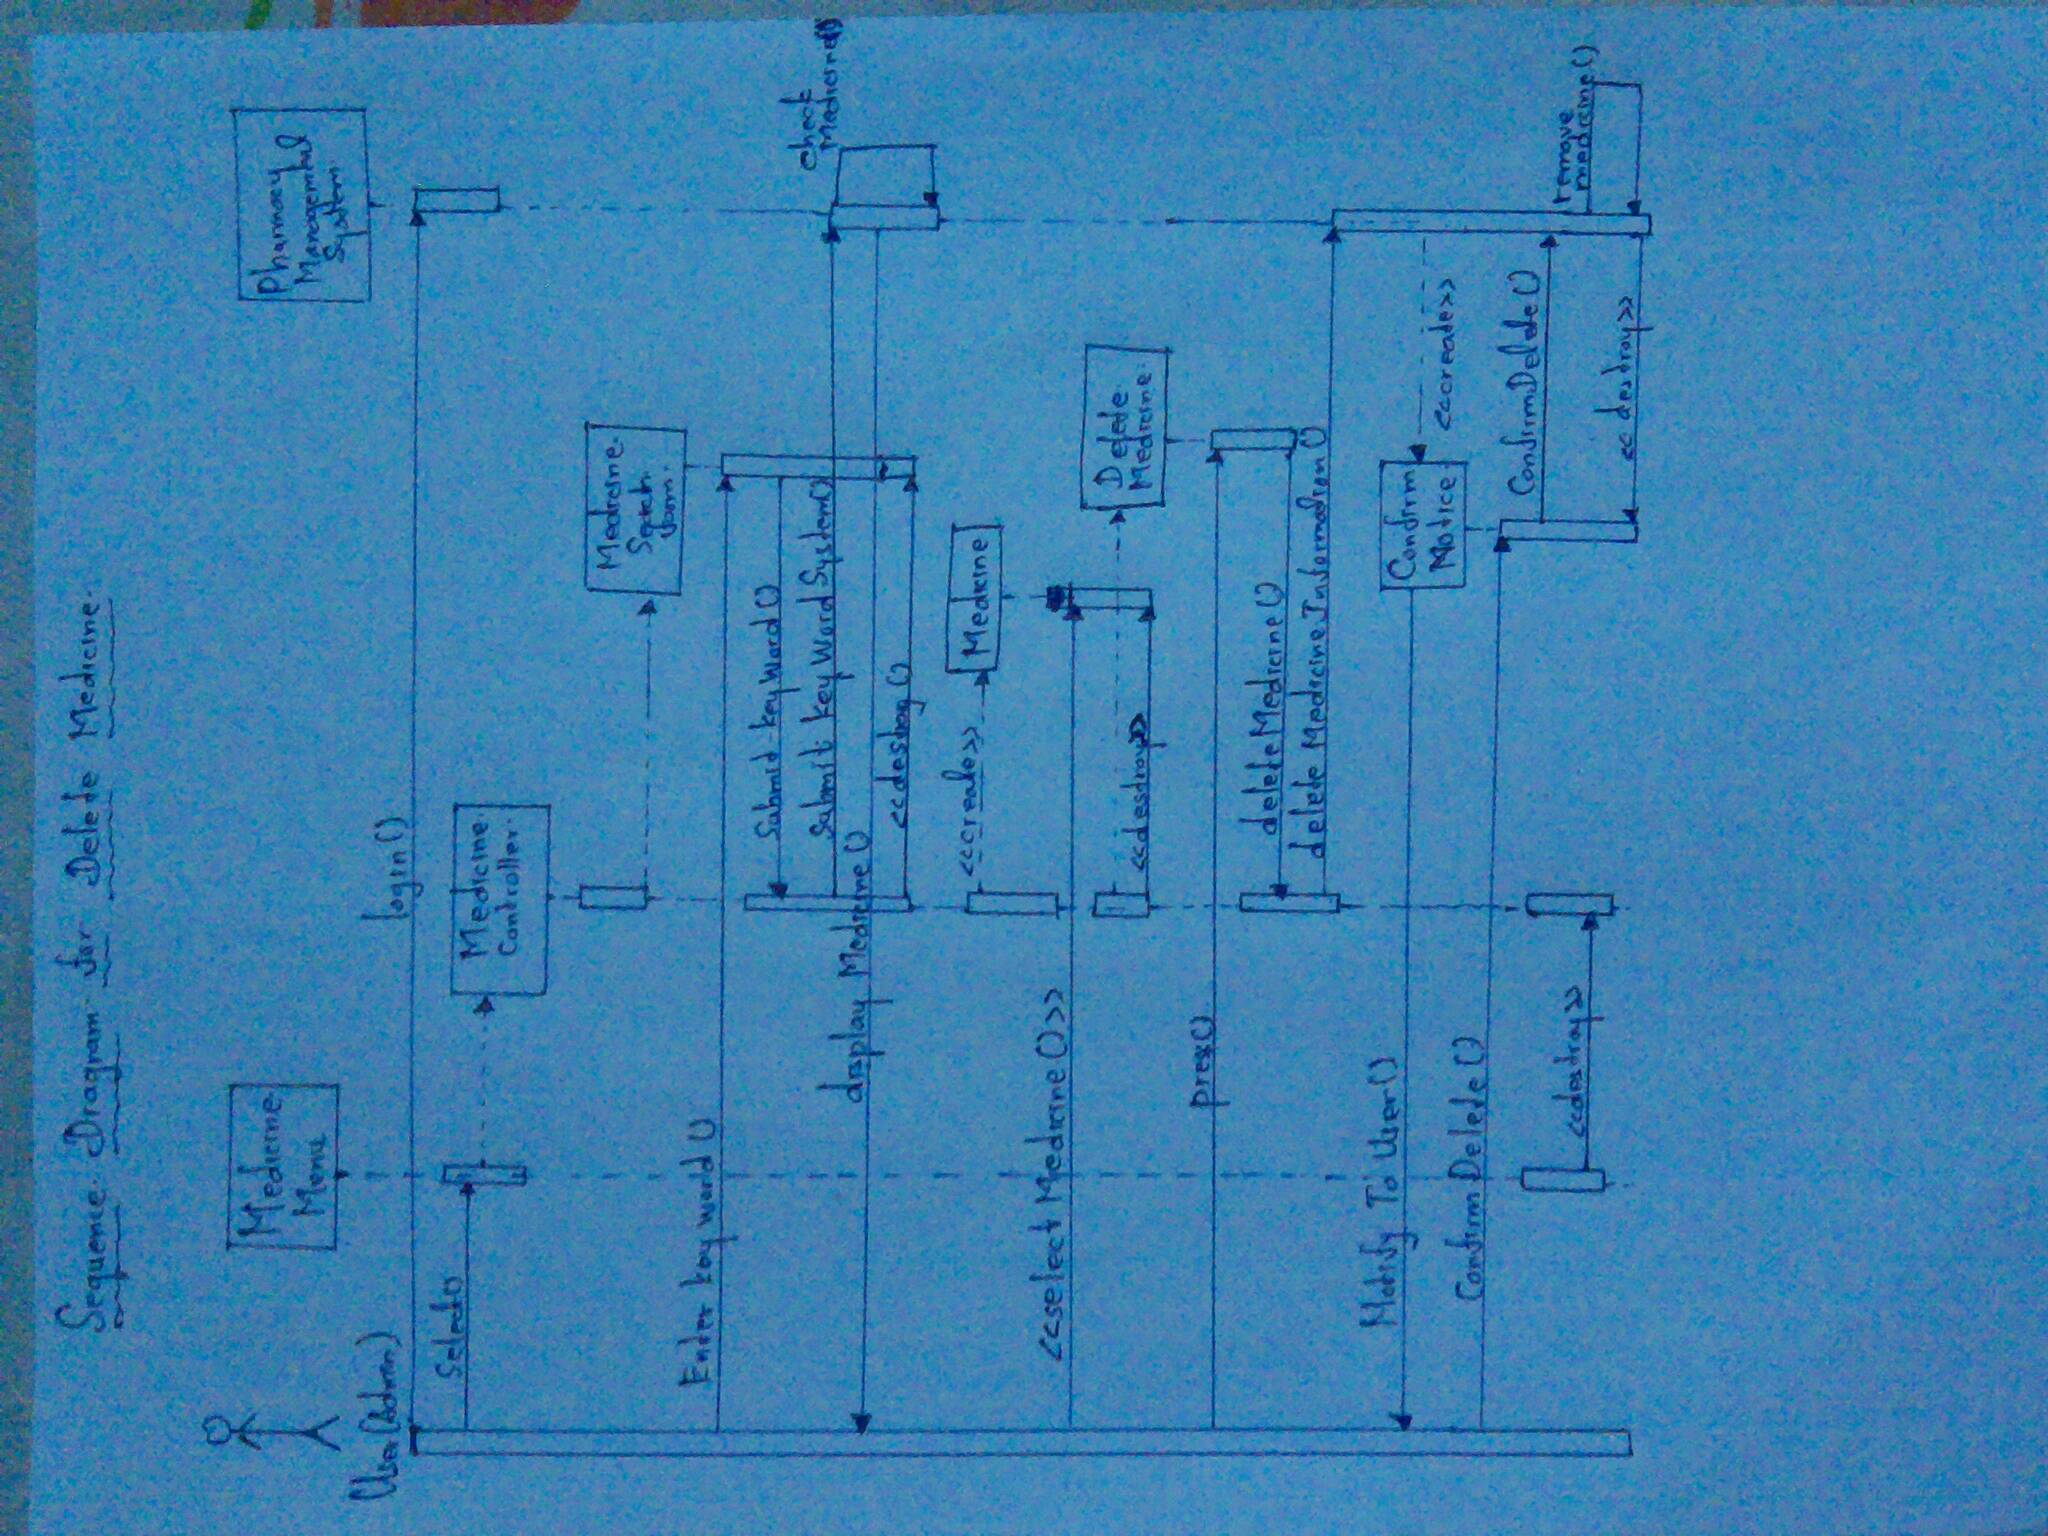 Sequence Diagram for Delete Medicine
Medicine
Menu
Pharmacy
Management
System
User(Admin)
login()
Select()
Medicine
Controller
Medicine
Search
Form
Enter key world ()
Submit keyWord()
check
Medicine()
Submit keyWordSystem()
display Medicine()
<<create>>
Medicine
<<select Medicine()>>
Delete
Medicine
<<destroy>>
press()
deleteMedicine()
delete MedicineInformation()
Notify To User()
Confirm
Notice
<<create>>
ConfirmDelete()
ConfirmDelete()
remove
medicine()
<<destroy>>
<<destroy>>